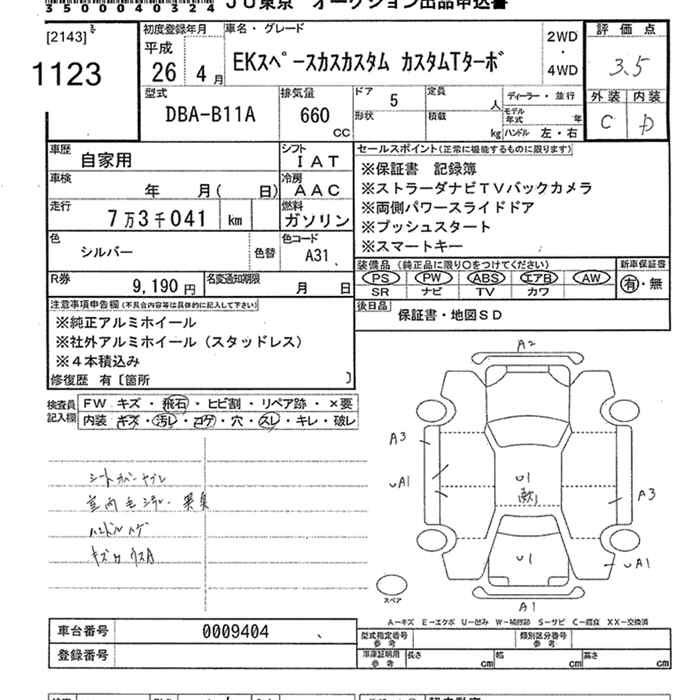 350040324 JU東京 オークション出品申込書
[2143]
1123
初度登録年月 車名・グレード
平成 26年 4月
EKスペースカスカスタム カスタムTターボ
2WD
・
4WD
評価点
3.5
外装 内装
C D
型式 DBA-B11A
排気量 660 cc
ドア 5
定員 人
ディーラー・並行
形状
積載 kg
モデル年式 年
ハンドル 左・右
車歴 自家用
シフト IAT
車検 年 月( 日)
冷房 AAC
走行 7万3千041 km
燃料 ガソリン
色 シルバー 色替
色コード A31
R券 9,190円
名変通知期限 月 日
セールスポイント(正常に機能するものに限ります)
※保証書 記録簿
※ストラーダナビTVバックカメラ
※両側パワースライドドア
※プッシュスタート
※スマートキー
装備品(純正品に限り〇をつけてください)
PS PW ABS エアB AW
SR ナビ TV カワ
新車保証書
有・無
後日品 保証書・地図SD
注意事項申告欄(不具合内容等は具体的に記入して下さい)
※純正アルミホイール
※社外アルミホイール(スタッドレス)
※4本積込み
修復歴 有〔箇所 〕
検査員記入欄
FW キズ・飛石・ヒビ割・リペア跡・×要
内装 キズ・汚レ・コゲ・穴・スレ・キレ・破レ
シートカバーヤブレ
ハンドルハゲ
A2
A3
UA1
U1
A3
U1
UA1
A1
スペア
A-キズ E-エクボ U-凹み W-補修跡 S-サビ C-腐食 XX-交換済
車台番号 0009404
登録番号
型式指定番号 参考
類別区分番号 参考
車庫証明用 参考 長さ cm 幅 cm 高さ cm